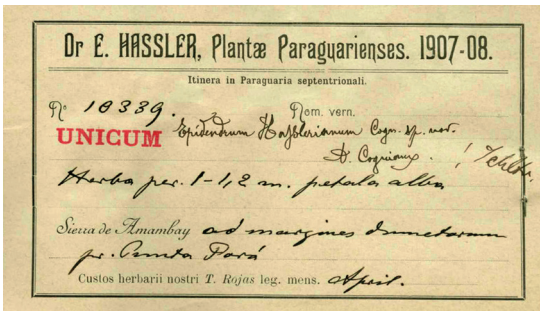 Dr E. HASSLER, Plantæ Paraguarienses. 1907-08.
Itinera in Paraguaria septentrionali.
No 10339. Nom. vern.
UNICUM Epidendrum Hasslerianum Cogn. sp. nov.
A. Cogniaux. ! Schltr.
Herba per. 1-1,2 m. petala alba
Sierra de Amambay ad margines dumetorum
pr. Punta Porá
Custos herbarii nostri T. Rojas leg. mens. April.